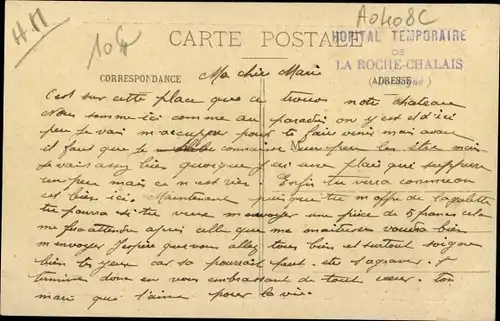 HM
10 F
A0408C
CARTE POSTALE
HOPITAL TEMPORAIRE
DE
LA ROCHE-CHALAIS
CORRESPONDANCE
ADRESSE
Ma chère Marie
C'est sur cette place que ce trouve notre chateau
Nous somme ici comme au paradis on y est d'ici
peu je vais m'occuper pour te faire venir mais avant
il faut que je connaisse un peu les etre mais
je vais assez bien quoique j'ai une plai qui suppure
un peu mais ce n'est rien Enfin tu verra comme on
est bien ici. Maintenant puisque tu m'offre de la galette
tu pourra si tu veux m'envoyer une pièce de 5 francs cela
me fera attendre après celle que me maitresse voudra bien
m'envoyer J'espère que vous allez tous bien et surtout soigne
bien tes yeux car sa pourrait peut etre s'agraver. Je
termine donc en vous embrassant de tout cœur. Ton
mari qui t'aime pour la vie.